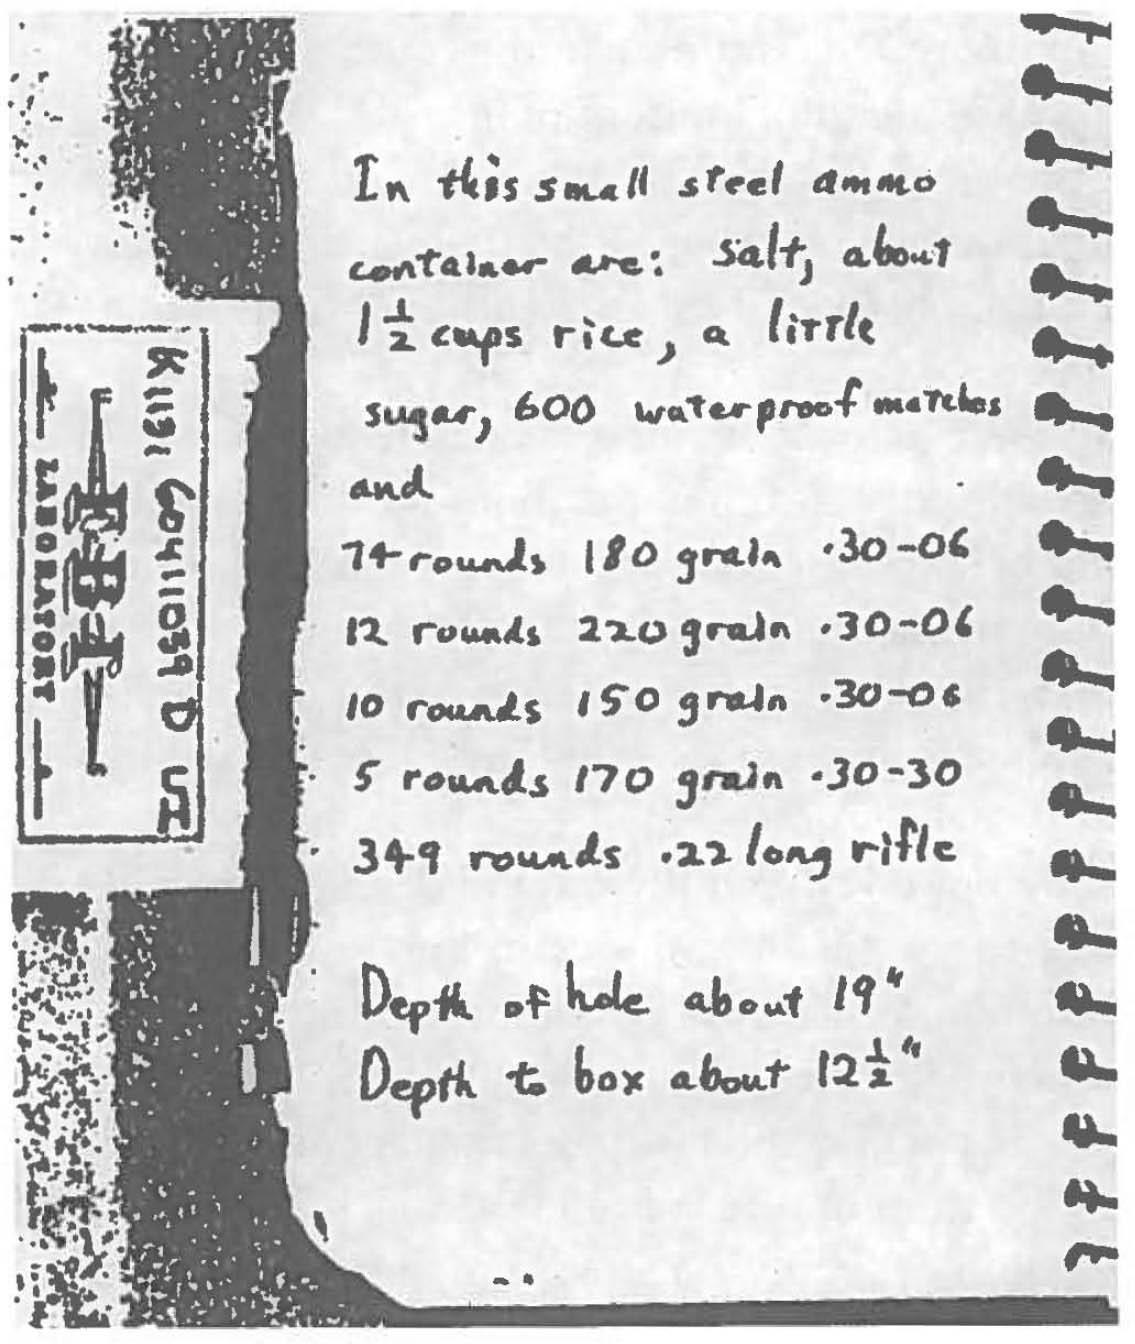 In this small steel ammo
container are: salt, about
1 1/2 cups rice, a little
sugar, 600 waterproof matches
and
74 rounds 180 grain .30-06
12 rounds 220 grain .30-06
10 rounds 150 grain .30-06
5 rounds 170 grain .30-30
349 rounds .22 long rifle
Depth of hole about 19"
Depth to box about 12 1/2"
FBI
LABORATORY